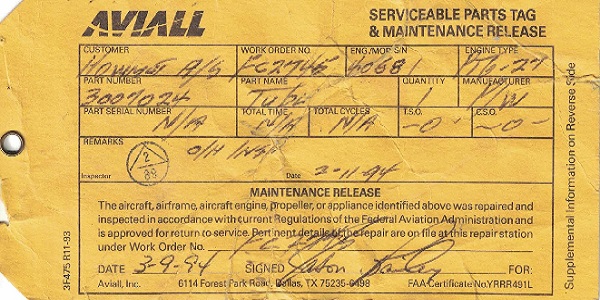 AVIALL SERVICEABLE PARTS TAG
& MAINTENANCE RELEASE
CUSTOMER WORK ORDER NO. ENG/MOP S/N ENGINE TYPE
A/S FC2745 40681 PT6-27
PART NUMBER PART NAME QUANTITY MANUFACTURER
3007024 Tube 1 P/W
PART SERIAL NUMBER TOTAL TIME TOTAL CYCLES T.S.O. C.S.O.
N/A N/A N/A -0- -0-
REMARKS
O/H Insp
2
89
Inspector Date 3-11-94
MAINTENANCE RELEASE
The aircraft, airframe, aircraft engine, propeller, or appliance identified above was repaired and
inspected in accordance with current Regulations of the Federal Aviation Administration and
is approved for return to service. Pertinent details of the repair are on file at this repair station
under Work Order No.
DATE 3-9-94 SIGNED
Aviall, Inc. 6114 Forest Park Road, Dallas, TX 75235-6498 FAA Certificate No. YRRR491L
3F475 R11-93
Supplemental Information on Reverse Side